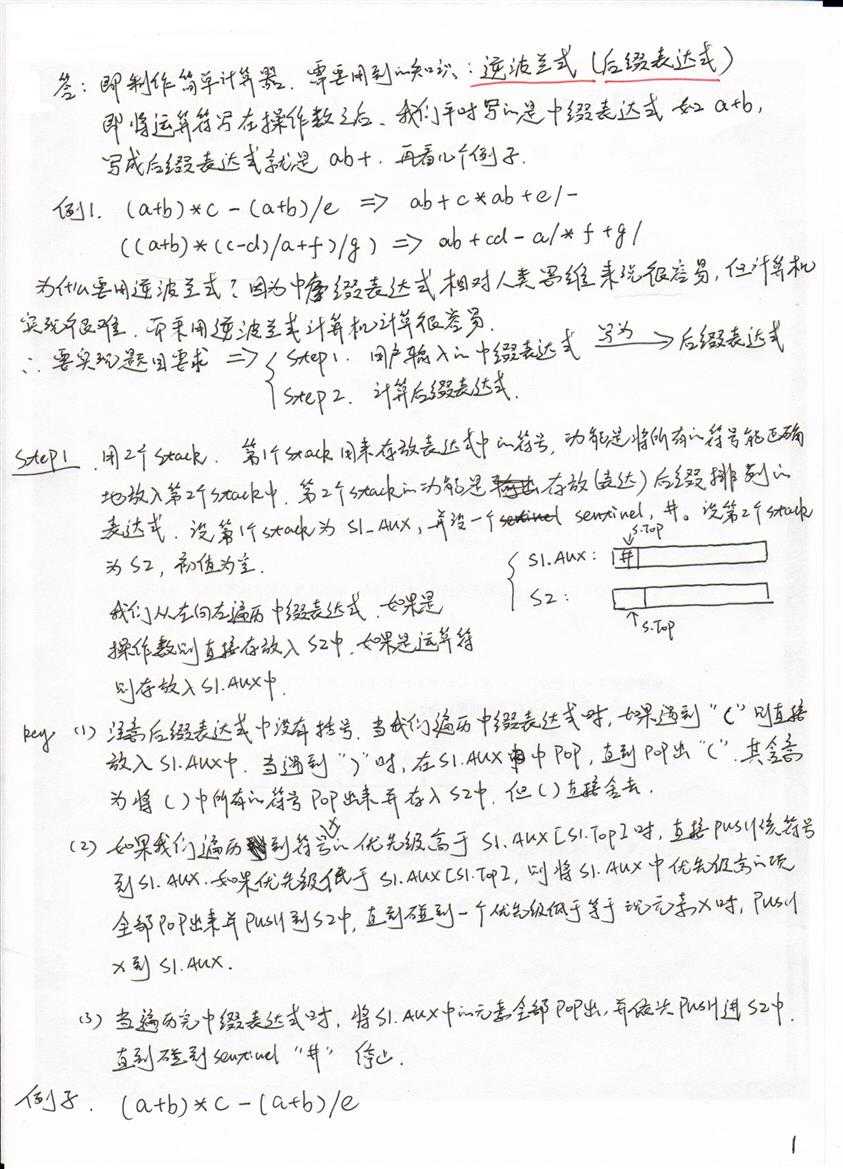 答: 即制作简单计算器. 需要用到的知识: 逆波兰式 (后缀表达式)
即将运算符写在操作数之后、我们平时写的是中缀表达式 如 a+b,
写成后缀表达式就是 ab+. 再看几个例子.
例1. (a+b)*c-(a+b)/e => ab+c*ab+e/-
((a+b)*(c-d)/a+f)/g) => ab+cd-a/*f+g/
为什么要用逆波兰式? 因为中缀表达式相对人类思维来说很容易, 但计算机
实现很难. 而采用逆波兰式计算机计算很容易.
∴ 要实现题目要求 => { Step1. 用户输入的中缀表达式 写为→ 后缀表达式
Step2. 计算后缀表达式.
Step1. 用2个stack. 第1个stack用来存放表达式中的符号, 功能是将所有的符号能正确
地放入第2个stack中. 第2个stack的功能是存放(表达)后缀排列的
表达式. 设第1个stack为 S1_AUX, 并设一个 sentinel, #。设第2个stack
为 S2, 初值为空.
S.Top
S1.AUX: #
S2:
S.Top
我们从左向右遍历中缀表达式. 如果是
操作数则直接存放入 S2中. 如果是运算符
则存放入 S1.AUX中.
key (1) 注意后缀表达式中没有括号. 当我们遍历中缀表达式时, 如果遇到 "(" 则直接
放入 S1.AUX中. 当遇到 ")" 时, 在 S1.AUX 中 POP, 直到 POP出 "(". 其含意
为将 ( ) 中所有的符号 POP出来并存入 S2中, 但 ( ) 直接舍去.
(2) 如果我们遍历到符号x的优先级高于 S1.AUX[S1.Top]时, 直接PUSH该符号
到 S1.AUX. 如果优先级低于 S1.AUX[S1.Top], 则将 S1.AUX 中优先级高的项
全部POP出来并PUSH到S2中, 直到碰到一个优先级低于等于现元素x时, PUSH
x到 S1.AUX.
(3) 当遍历完中缀表达式时, 将S1.AUX中的元素全部POP出, 并依次PUSH进S2中.
直到碰到sentinel "#" 停止.
例子. (a+b)*c-(a+b)/e
1